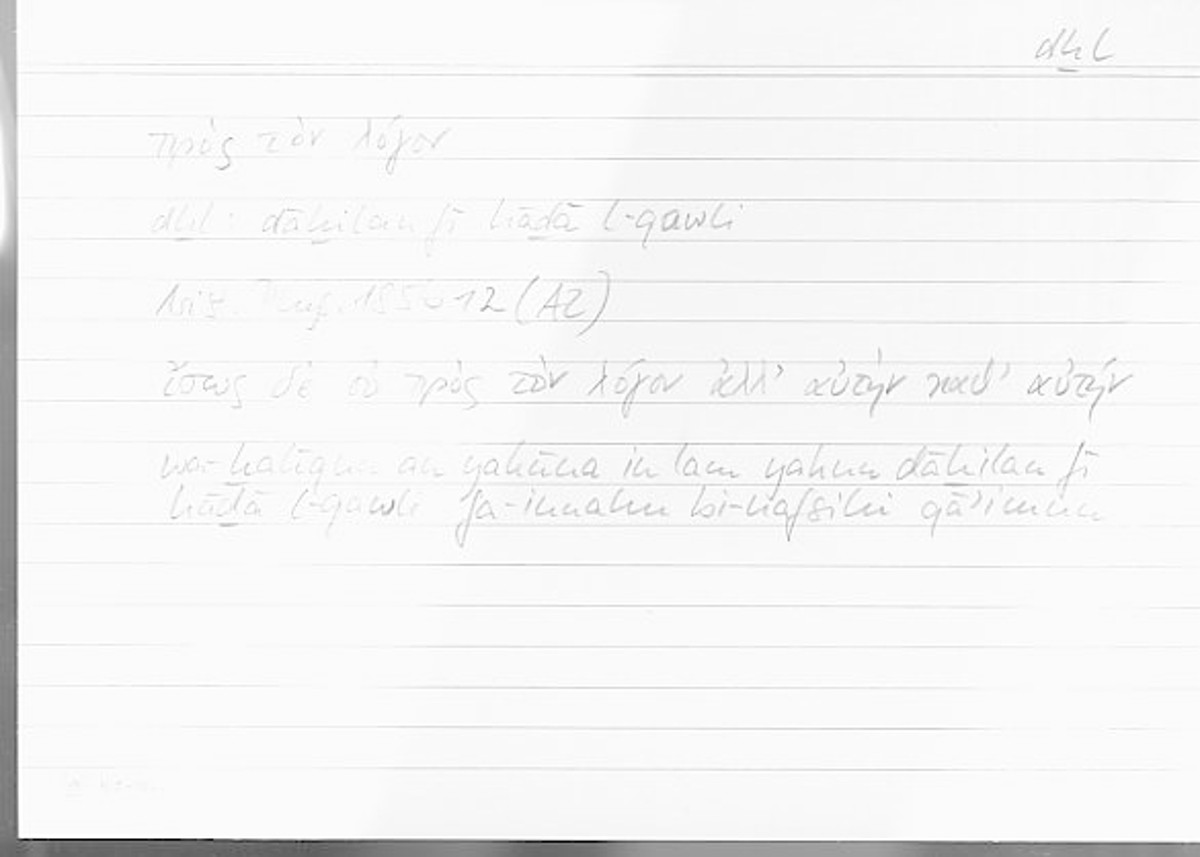 dḫl
πρὸς τὸν λόγον
dḫl: dāḫilan fī hāḏā l-qawli
12 (AZ)
ἴσως δὲ οὐ πρὸς τὸν λόγον ἀλλ’ αὐτὴν καθ’ αὑτήν
wa-ḫalīqun an yakūna in lam yakun dāḫilan fī
hāḏā l-qawli fa-innahu bi-nafsihi qā’imun